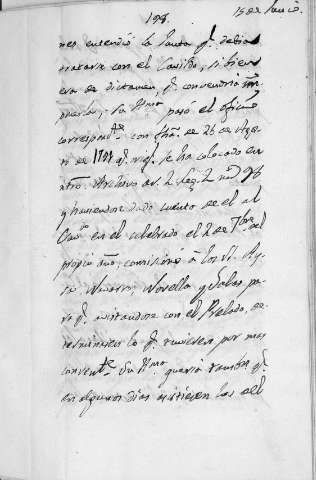 198.
15 de Junio.
nes entendió la Junta q.e debia
tratarse con el Cavildo, si bien
era de dictamen, q.e convendria im
su Yll.mo pasó el oficio
correspond.te con fha. de 26 de Agos
to de 1791 q.e orig.l se ha colocado en
ntro. Archivo
y haviendose dado cuenta de el al
Cav.do en el celebrado el 2 de 7bre. del
propio año, comisionó a los S.res
Navarro, Novella y Salas pa
ra q.e avistandose con el Prelado, de
terminasen lo q.e tuviesen por mas
conven.te Su Yll.mo queria tambien q.e
en algunos dias asistiesen las del